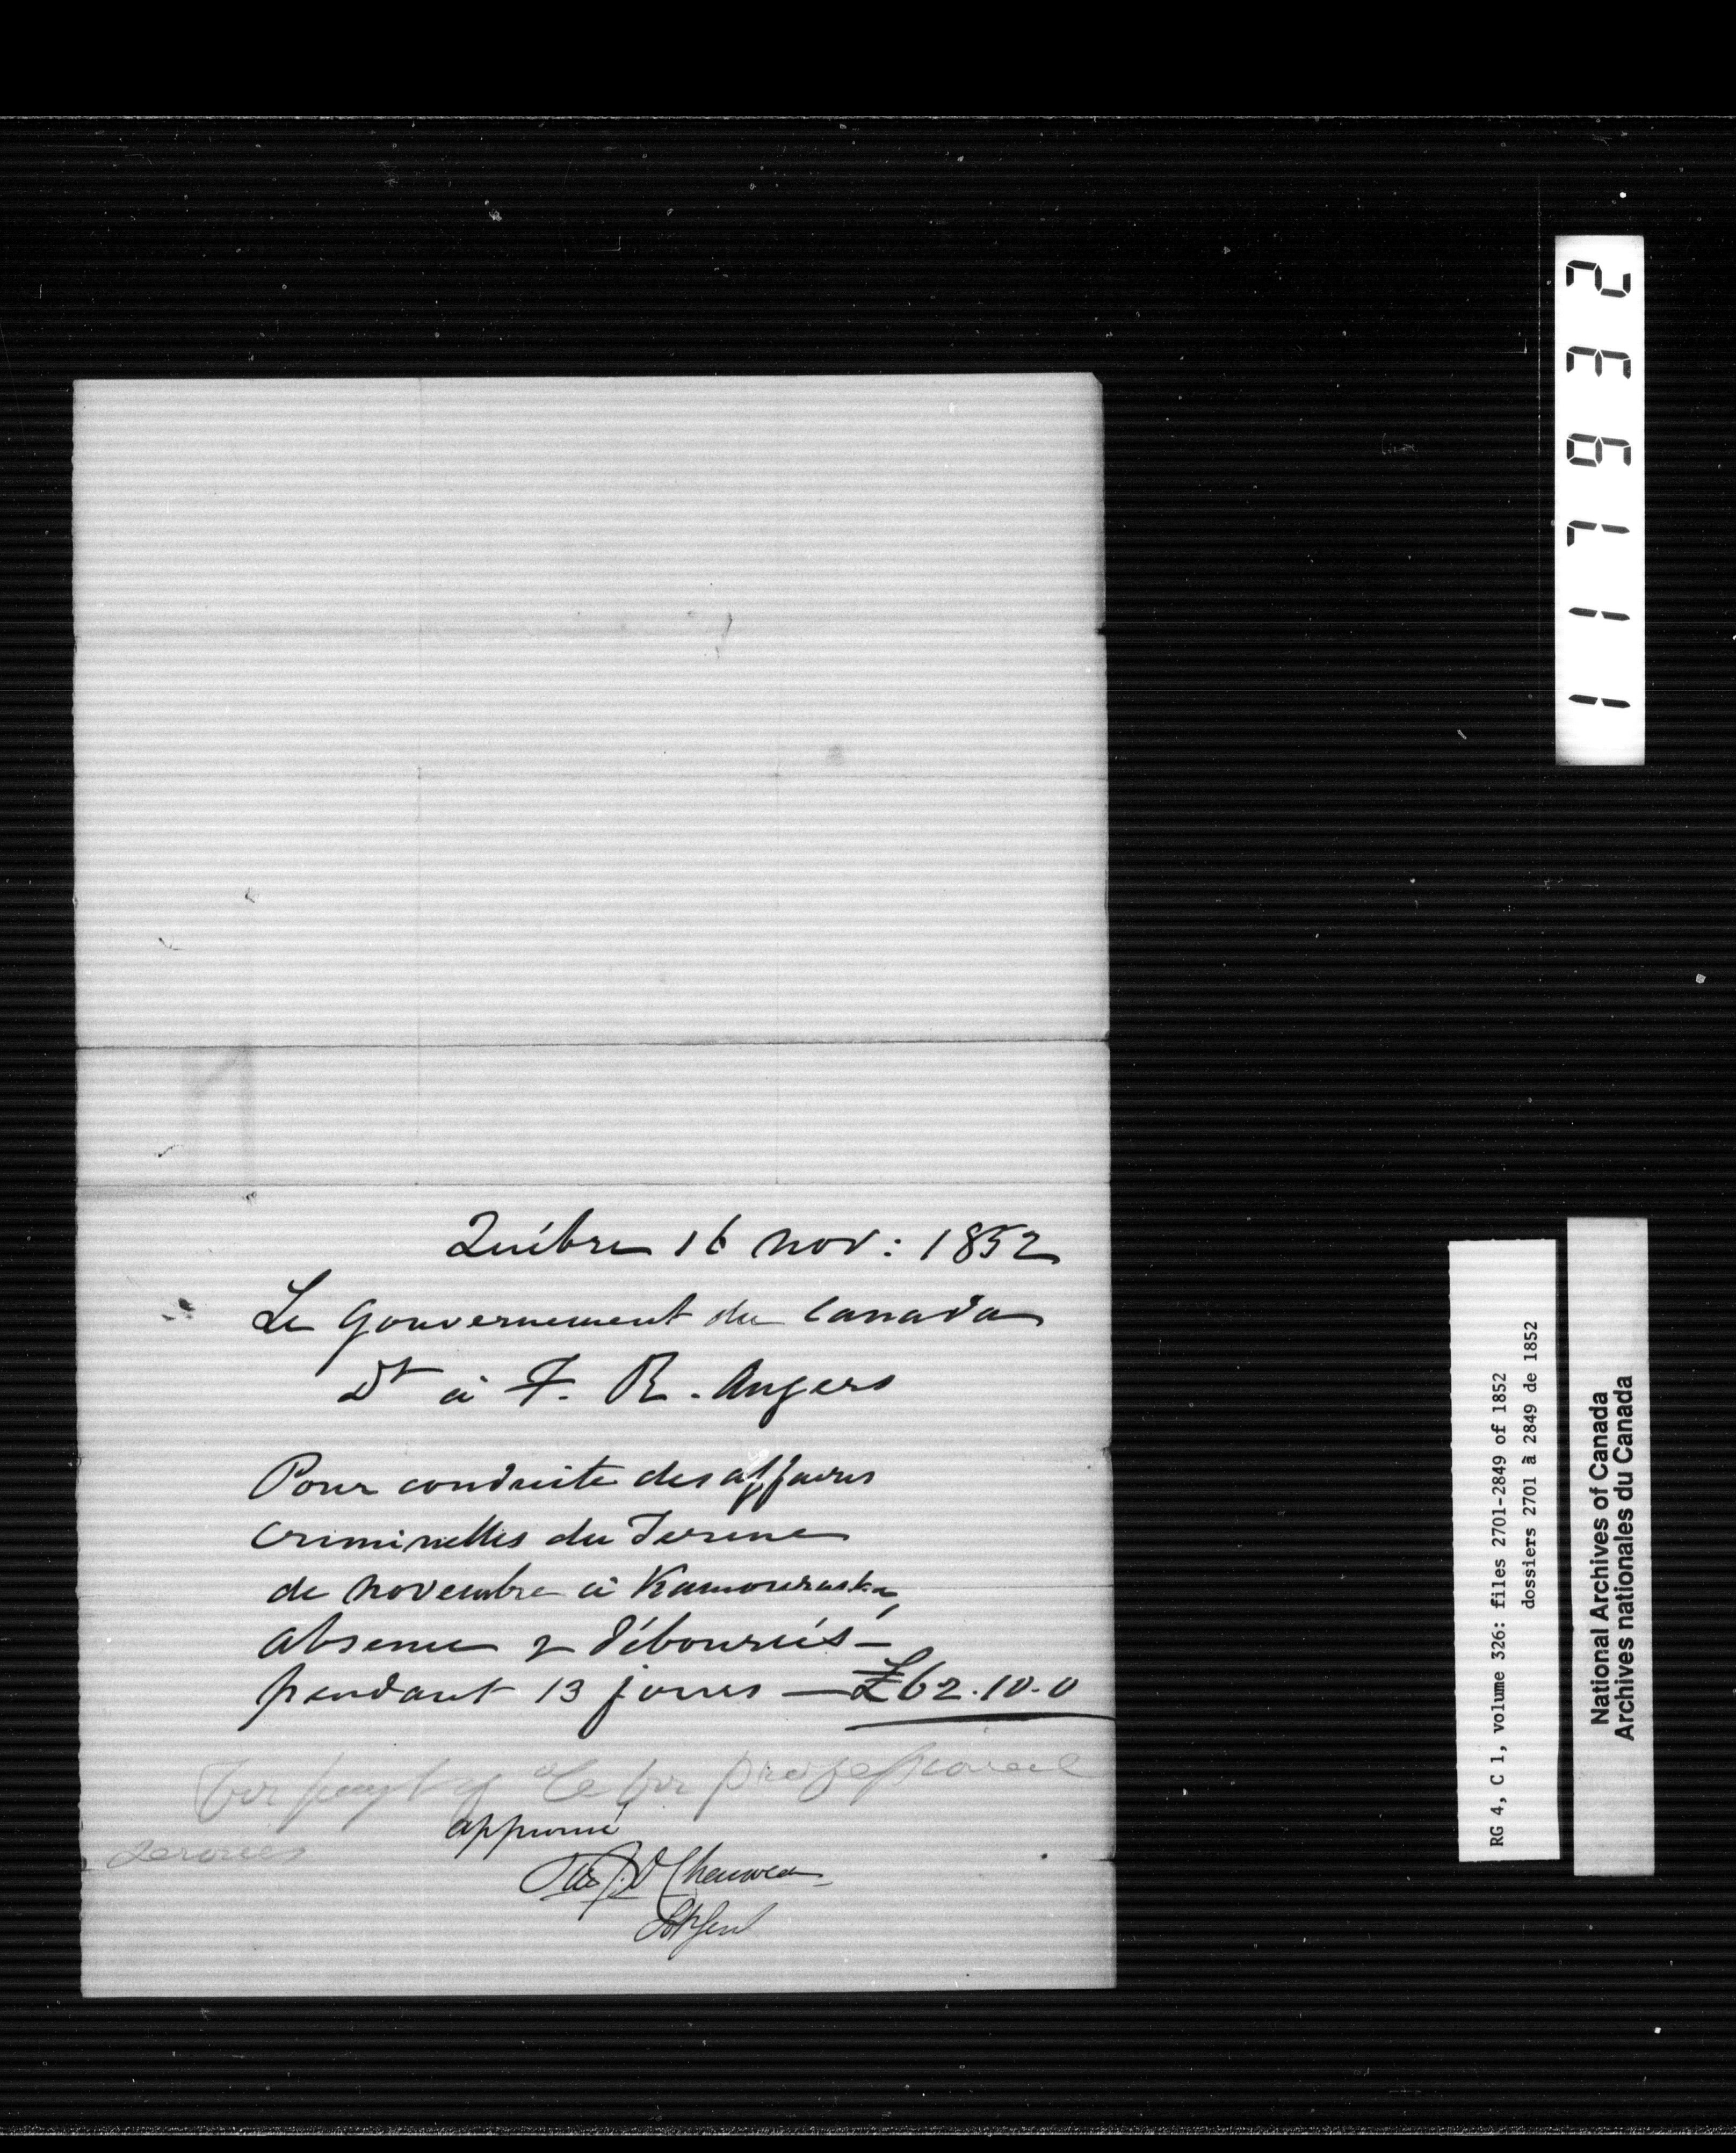 Québec 16 nov: 1852
Le Gouvernement du Canada
Dt à F. R. Angers
Pour conduite des affaires
Criminelles du Terme
de novembre à Kamouraska,
absence & déboursés –
pendant 13 jours — £62.10.0
For payt of a/c for professional
services
approuvé
P. J. O. Chauveau
Sol Genl
117632
RG 4, C 1, volume 326: files 2701-2849 of 1852
dossiers 2701 à 2849 de 1852
National Archives of Canada
Archives nationales du Canada